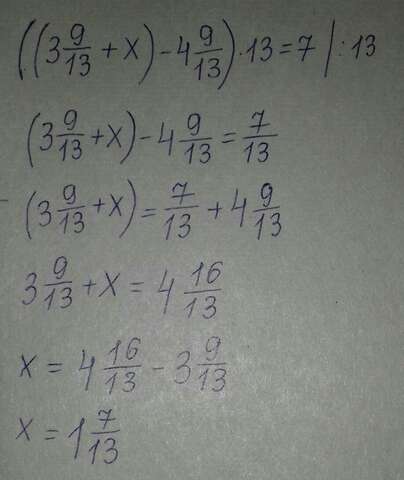 ((3 9/13 + x) - 4 9/13) · 13 = 7 | : 13
(3 9/13 + x) - 4 9/13 = 7/13
(3 9/13 + x) = 7/13 + 4 9/13
3 9/13 + x = 4 16/13
x = 4 16/13 - 3 9/13
x = 1 7/13